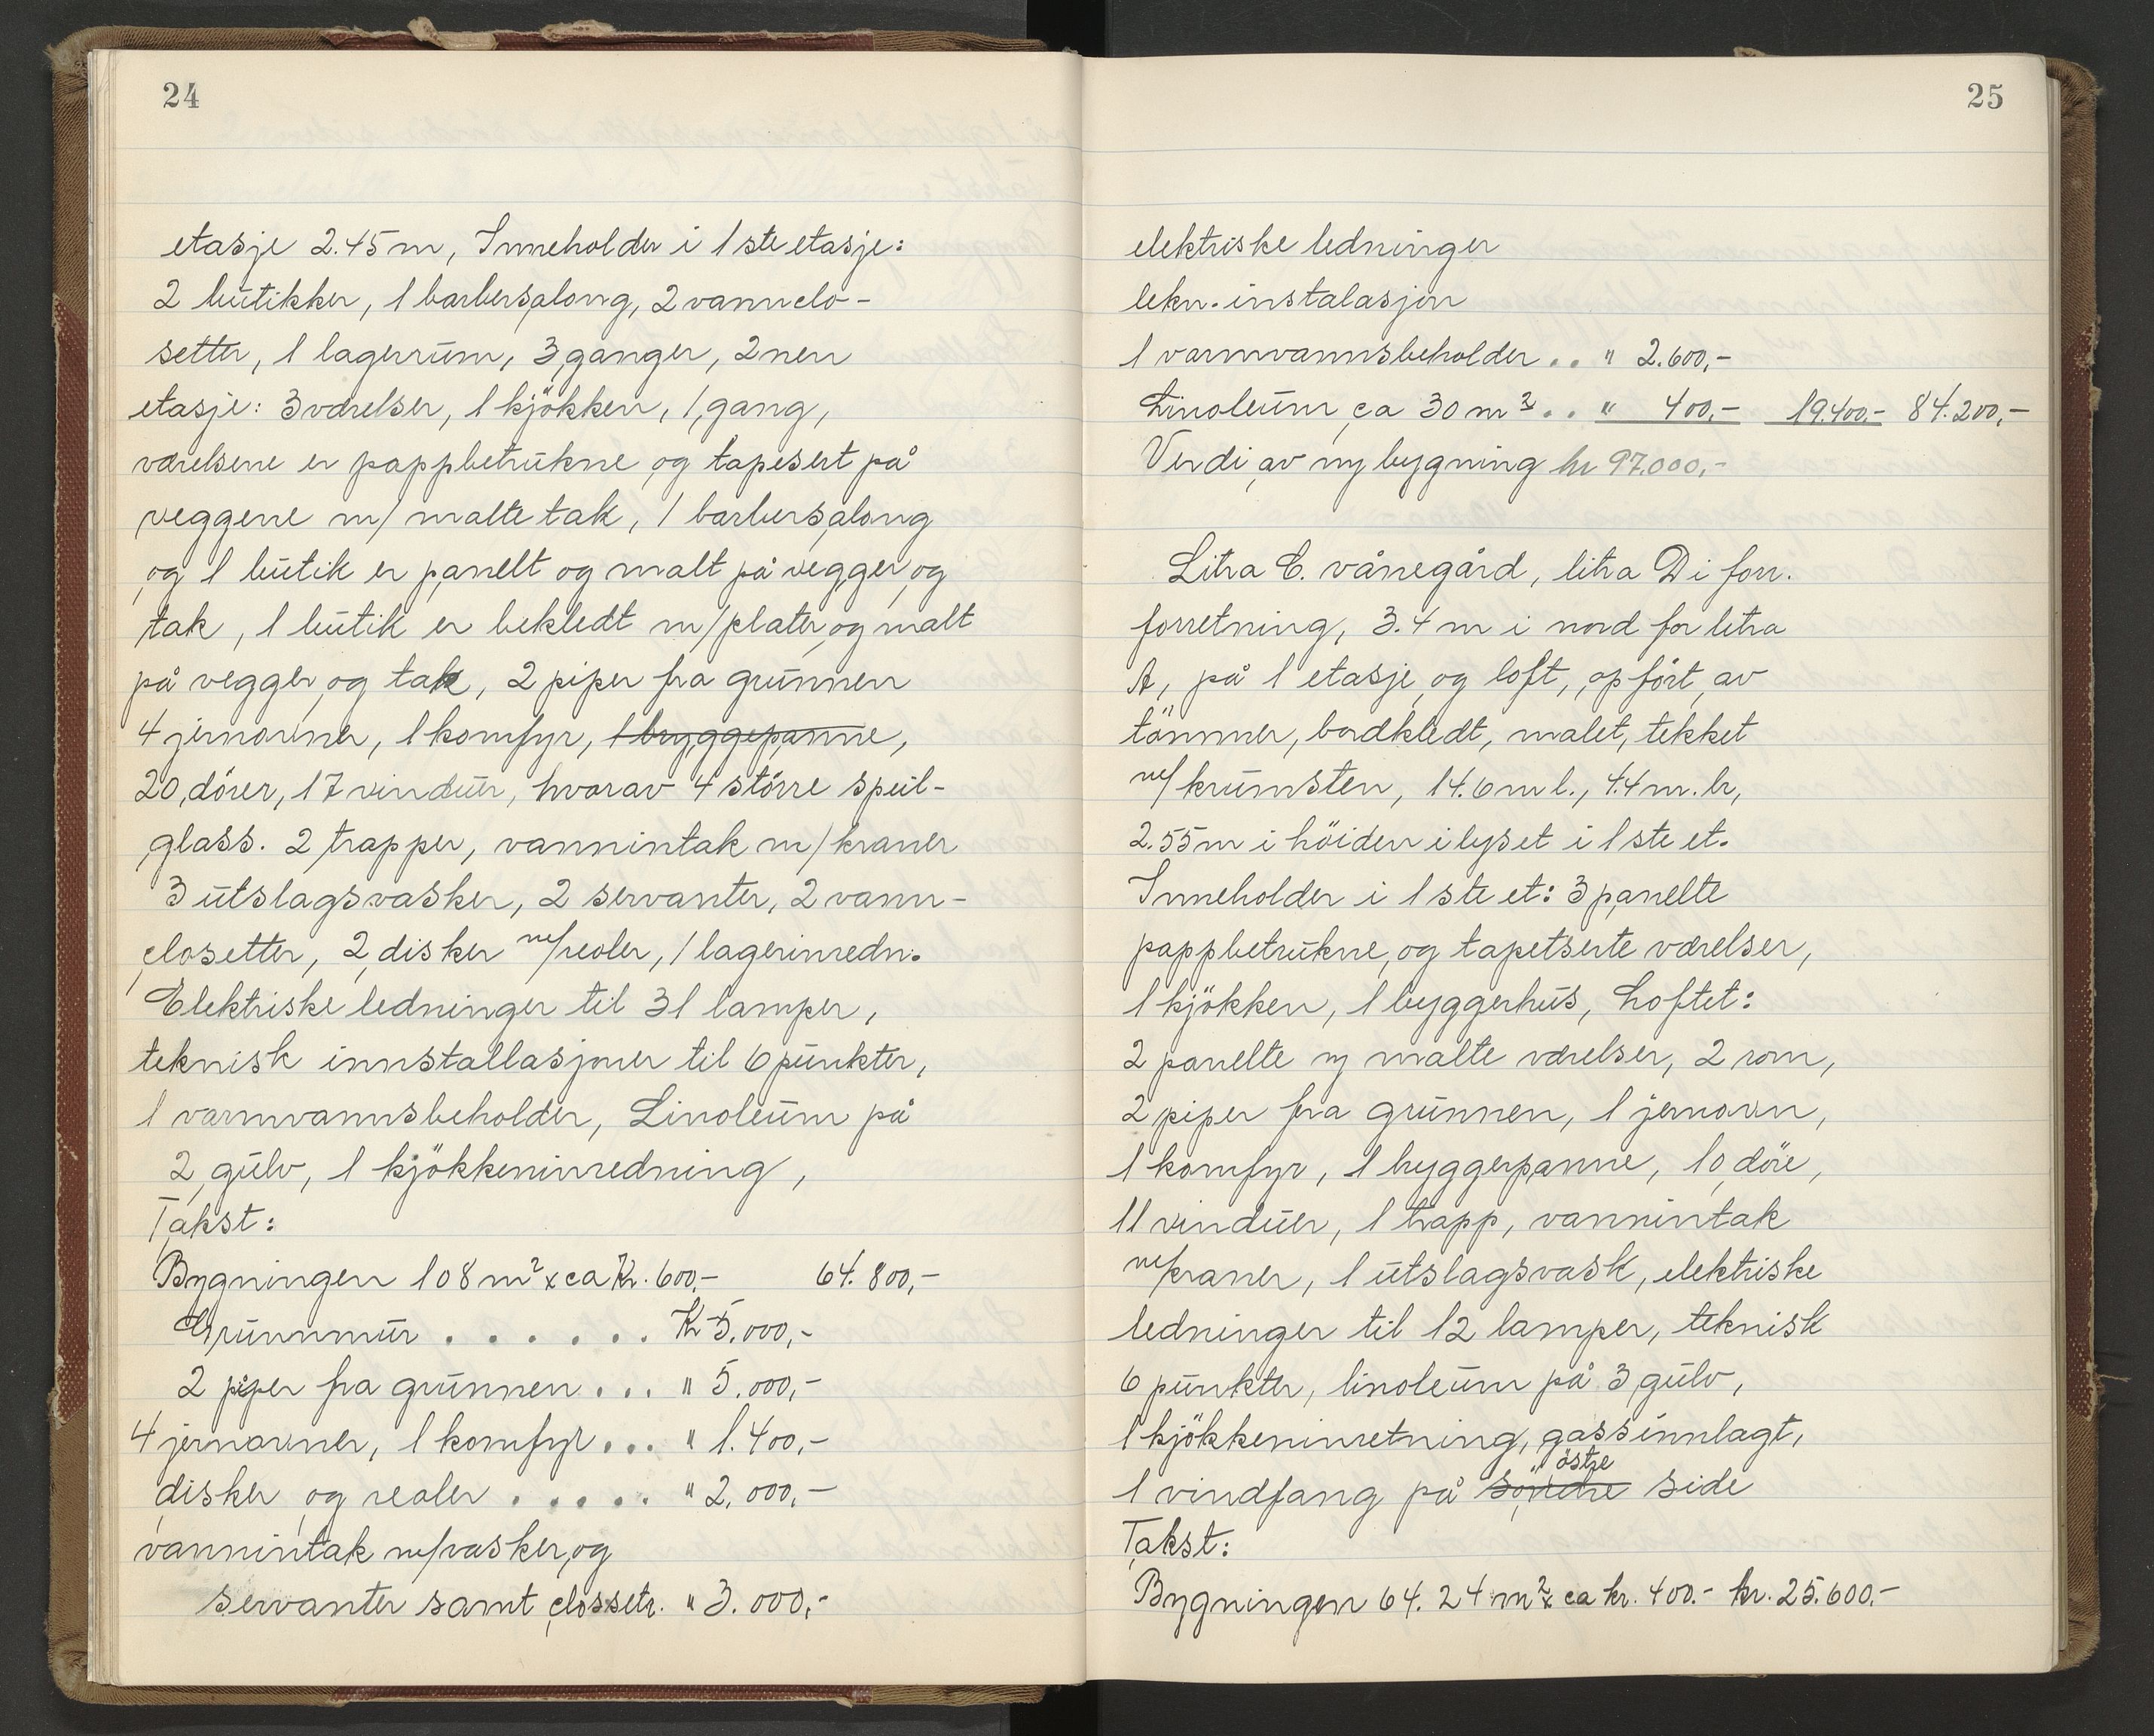 24
etasje 2.45 m, Inneholder i 1ste etasje:
2 butikker, 1 barbersalong, 2 vannclo-
setter, 1 lagerrum, 3 ganger, 2nen
etasje: 3 værelser, 1 kjökken, 1 gang,
værelsene er pappbetrukne og tapesert på
veggene m/ malte tak, 1 barbersalong
og 1 butik er panelt og malt på vegger og
tak, 1 butik er bekledt m/plater og malt
på vegger og tak, 2 piper fra grunnen
4 jernovner, 1 komfyr, 1 bryggepanne,
20 dörer, 17 vinduer, hvorav 4 större speil-
glass. 2 trapper, vanninntak m/kraner
3 utslagsvasker, 2 servanter, 2 vann-
closetter, 2 disker m/reoler, 1 lagerinredn.
Elektriske ledninger til 31 lamper,
teknisk innstallasjoner til 6 punkter,
1 varmvannsbeholder, Linoleum på
2 gulv, 1 kjökkeninredning,
Takst:
Bygningen 108 m² x ca Kr. 600,- 64.800,-
Grunnmur . . . . . . Kr 5.000,-
2 piper fra grunnen . . . " 5.000,-
4 jernovner, 1 komfyr . . . " 1.400,-
disker og reoler . . . . . " 2.000,-
vannintak m/vasker og
servanter samt closetr. " 3.000,-
25
elektriske ledninger
tekn. instalasjon
1 varmvannsbeholder . . " 2.600,-
Linoleum ca 30 m² . . " 400,- 19.400,- 84.200,-
Verdi av ny bygning kr 97.000,-
Litra C. vånegård, litra D i forr.
forretning, 3.4 m i nord for litra
A, på 1 etasje og loft, opfört av
tömmer, bordkledt, malet, tekket
m/krumsten, 14.6 m l., 4.4 m. br,
2.55 m i höiden i lyset i 1ste et.
Inneholder i 1ste et: 3 panelte
pappbetrukne og tapetserte værelser,
1 kjökken, 1 byggerhus, Loftet:
2 panelte og malte værelser, 2 rom,
2 piper fra grunnen, 1 jernovn,
1 komfyr, 1 bryggerpanne, 10 döre,
11 vinduer, 1 trapp, vannintak
m/kraner, 1 utslagsvask, elektriske
ledninger til 12 lamper, teknisk
6 punkter, linoleum på 3 gulv,
1 kjökkeninretning, gass innlagt,
östre
1 vindfang på söndre side
Takst:
Bygningen 64.24 m² x ca kr. 400.- kr. 25.600.-